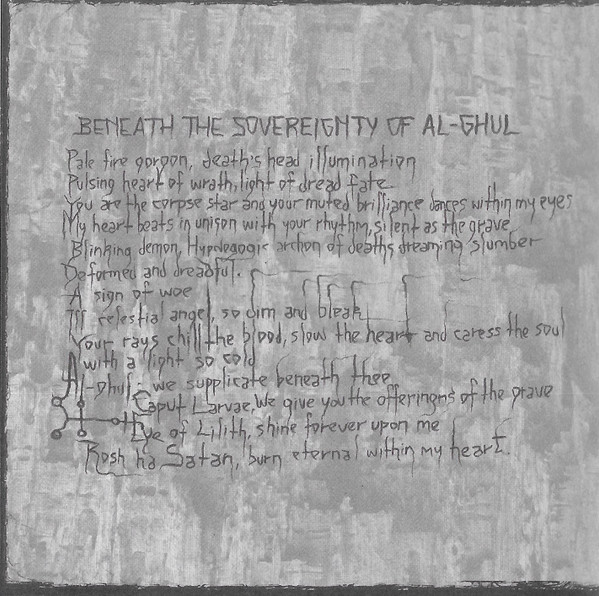 BENEATH THE SOVEREIGNTY OF AL-GHUL
Pale fire gorgon, death's head illumination
Pulsing heart of wrath, light of dread fate.
You are the corpse star and your muted brilliance dances within my eyes
My heart beats in unison with your rhythm, silent as the grave
Blinking demon, Hypnogogic archon of deaths dreaming slumber
Deformed and dreadful.
A sign of woe
Ill celestial angel, so dim and bleak
Your rays chill the blood, slow the heart and caress the soul
with a light so cold
Al-Ghul: we supplicate beneath thee
Caput Larvae, We give you the offerings of the grave
Eye of Lilith, shine forever upon me
Rosh ha Satan, burn eternal within my heart.